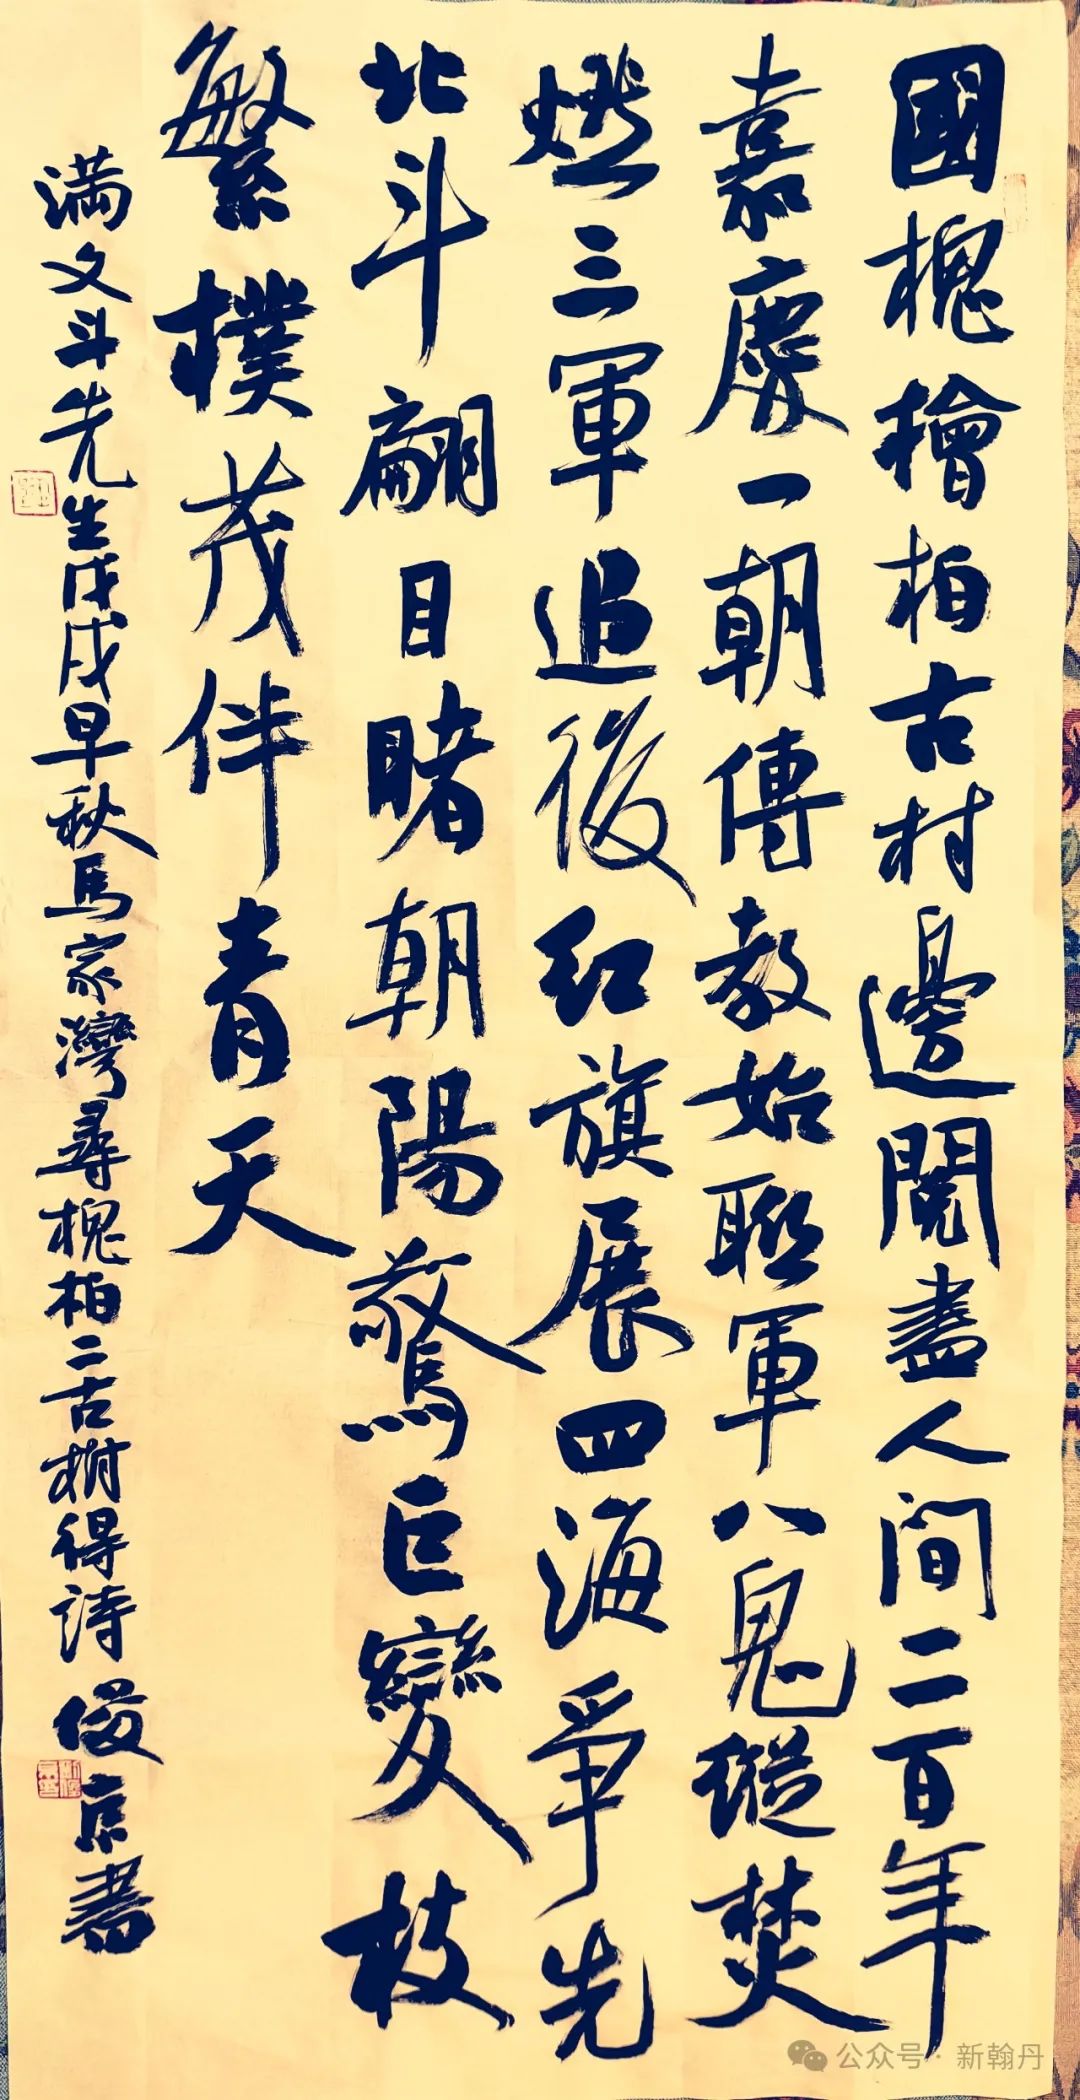 國槐檜柏古村邊閱盡人间二百年
嘉慶一朝傳教始聯軍八鬼縱焚
燃三軍追後红旗展四海爭先
北斗翩目睹朝陽驚巨變枝
繁樸茂伴青天
满文斗先生戊戌早秋馬家灣尋槐柏二古樹得詩俊京書
公众号·新翰丹